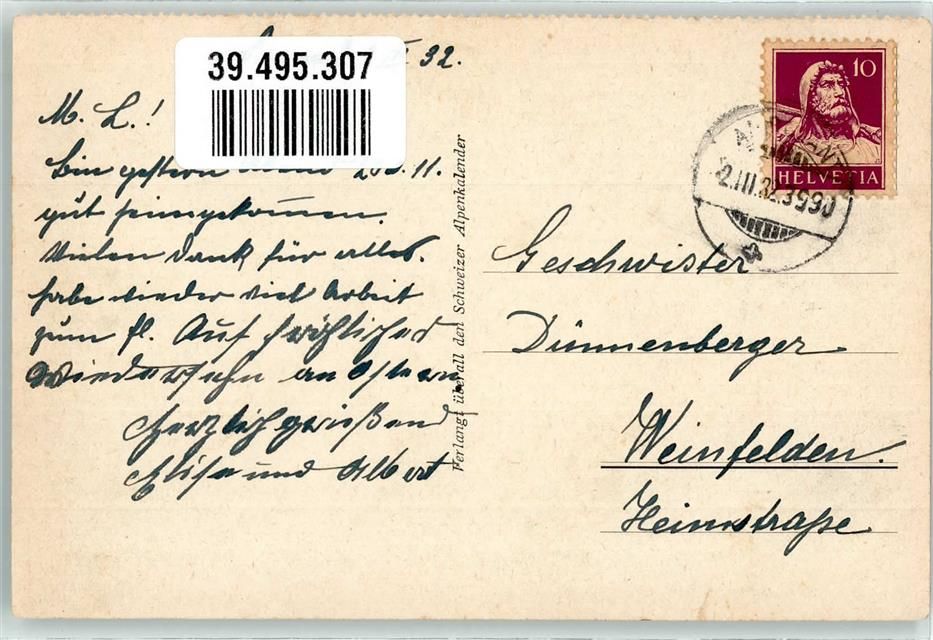 32.
39.495.307
M. L.!
Bin gestern 11.
gut heimgekommen.
Vielen Dank für alles.
habe wieder viel Arbeit
zum fl. Auf fröhliches
Wiedersehn an Ostern
herzlich grüßend
Elisa und Albert
Verlangt überall den Schweizer Alpenkalender
10
HELVETIA
2.III.32.
Geschwister
Dünnenberger
Weinfelden.
Heimstraße